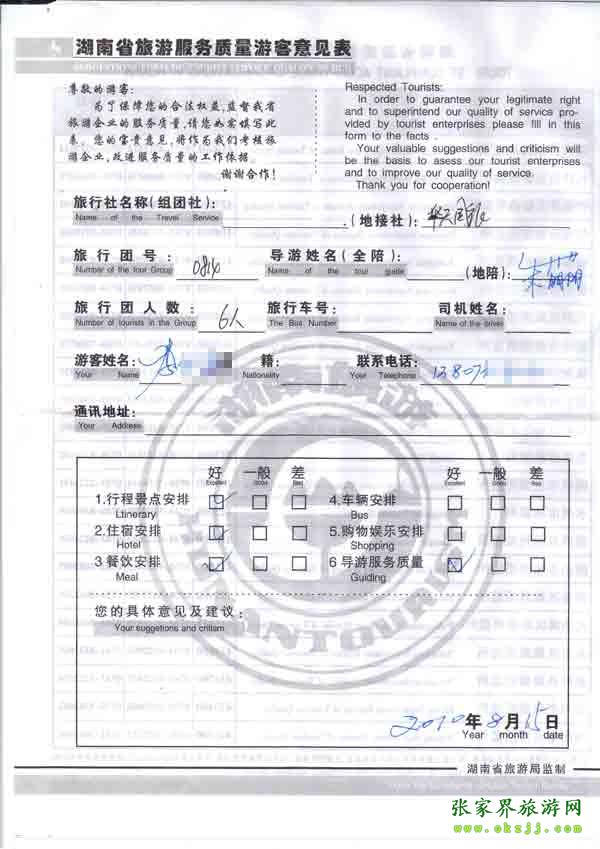 湖南省旅游服务质量游客意见表
尊敬的游客:
为了保障您的合法权益,监督我省
旅游企业的服务质量,请您如实填写此
表。您的宝贵意见,将作为我们考核旅
游企业,改进服务质量的工作依据。
谢谢合作!
Respected Tourists:
In order to guarantee your legitimate right
and to superintend our quality of service pro-
vided by tourist enterprises please fill in this
form to the facts .
Your valuable suggestions and criticism will
be the basis to asess our tourist enterprises
and to improve our quality of service.
Thank you for cooperation!
旅行社名称(组团社): (地接社):
Name of the Travel Service
旅行团号: 导游姓名(全陪): (地陪)
Number of the tour Group Name of the tour guide
旅行团人数: 6人 旅行车号: 司机姓名:
Number of tourists in the Group The Bus Number Name of the driver
游客姓名: 李 籍: 联系电话: 13807
Your Name Nationality Your Telephone
通讯地址:
Your Address
好 一般 差 好 一般 差
Excellent Good Bad Excellent Good Bad
1.行程景点安排 4.车辆安排
Ltinerary Bus
2.住宿安排 5.购物娱乐安排
Hotel Shopping
3 餐饮安排 6 导游服务质量
Meal Guiding
您的具体意见及建议:
Your suggetions and critism
2010年8月15日
Year month date
湖南省旅游局监制
张家界旅游网
www.okzjj.com